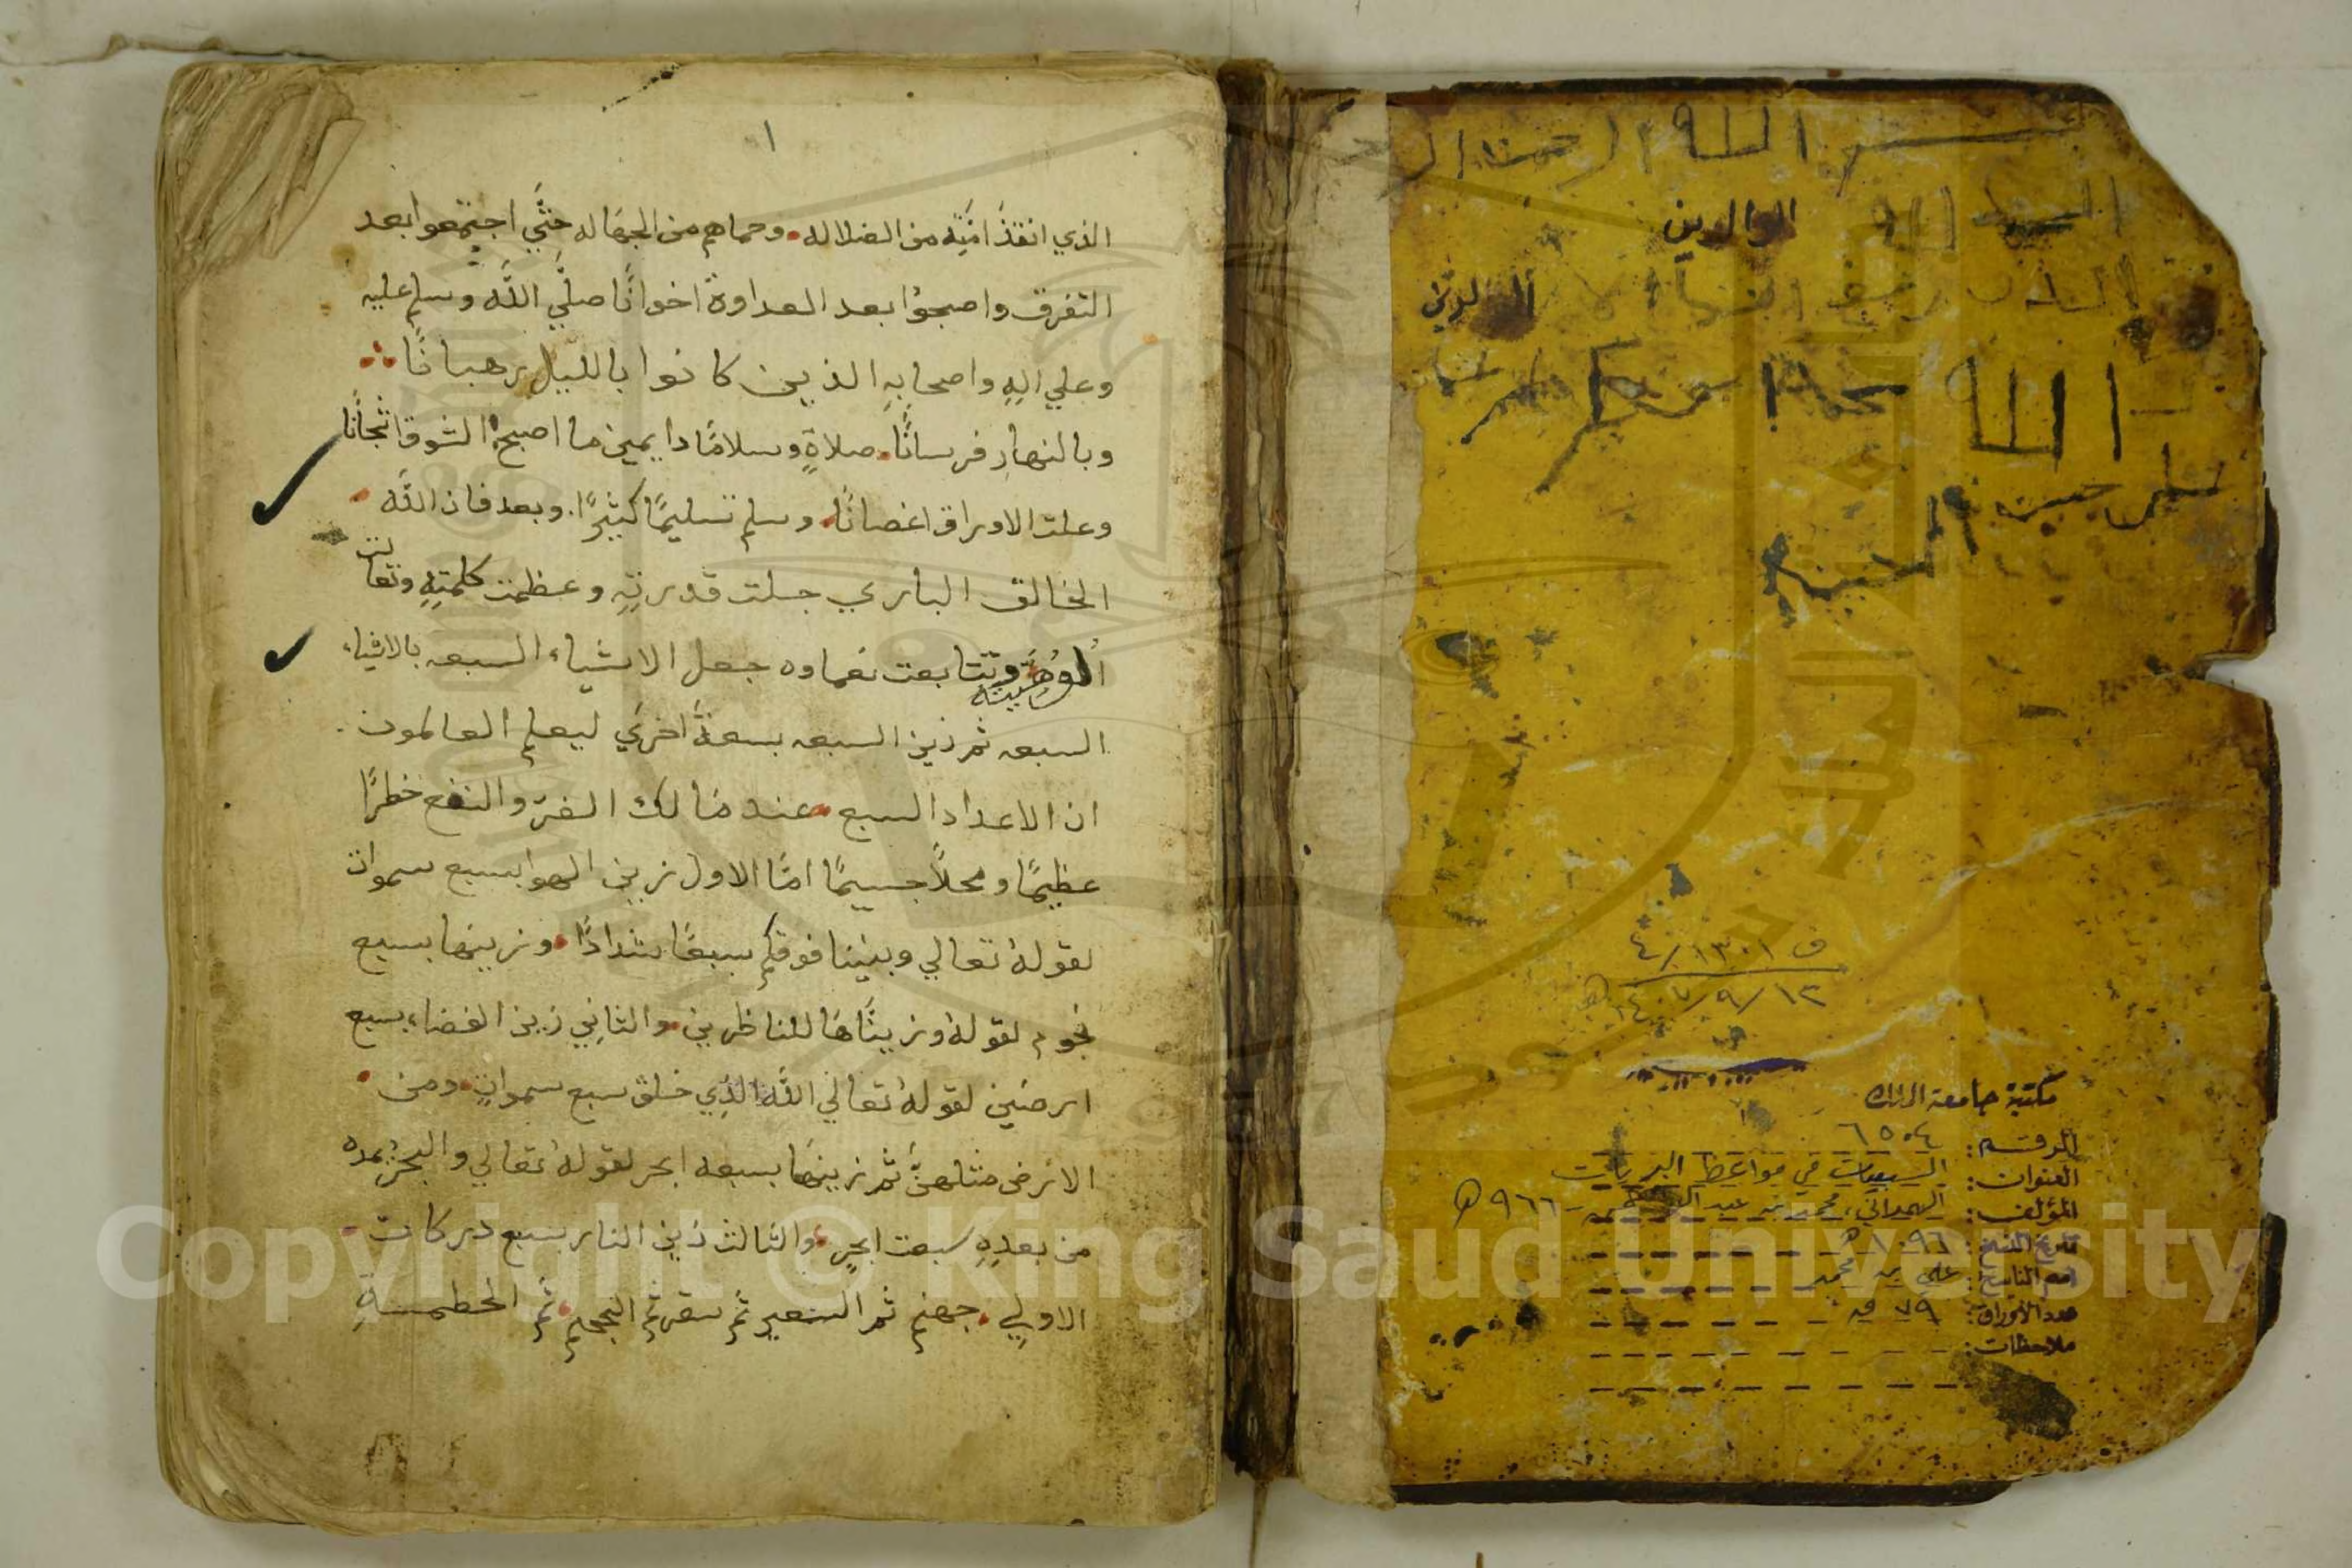 بسم الله الرحمن الر
الوالدين
الله
مكتبة جامعة الملك
الرقم: ٦٥٠٤
العنوان: السبعيات في مواعظ البريات
المؤلف: الهمداني، محمد بن عبد الرحمن - ٩٦٦ هـ
تاريخ النسخ: ١٠٩٦ هـ
اسم الناسخ: علي بن محمد
عدد الأوراق: ٧٩ ق
ملاحظات:
ف ١٣٠١ / ٤
١٤٠٧/٩/١٣ هـ
١
الذي انقذ امته من الضلاله وحماهم من الجهاله حتي اجتمعوا بعد
التفرق واصبحوا بعد العداوة اخوانًا صلي الله وسلم عليه
وعلي اله واصحابه الذين كانوا بالليل رهبانًا
وبالنهار فرسانًا صلاةً وسلامًا دايمين ما اصبح الشوق اشجانًا
وعلت الاوراق اغصانًا وسلم تسليمًا كثيرًا. وبعد فان الله
الخالق الباري جلت قدرته وعظمت كلمته وتعالت
الوهيته وتتابعت نعماوه جعل الاشياء السبعه بالاشياء
السبعه ثم زين السبعه بسبعة اخري ليعلم العالمون
ان الاعداد السبع عند مالك الضر والنفع خطرًا
عظيمًا ومحلًا جسيمًا امّا الاول زين الهوا بسبع سموات
لقوله تعالي وبنينا فوقكم سبعًا شدادًا وزينها بسبع
نجوم لقوله وزيناها للناظرين والثاني زين الفضاء بسبع
ارضين لقوله تعالي الله الذي خلق سبع سموات ومن
الارض مثلهن ثم زينها بسبعه ابحر لقوله تعالي والبحر يمده
من بعده سبعت ابحر والثالث زين النار بسبع دركات
الاولي جهنم ثم السعير ثم سقر ثم الجحيم ثم الحطمة
Copyright © King Saud University
1957